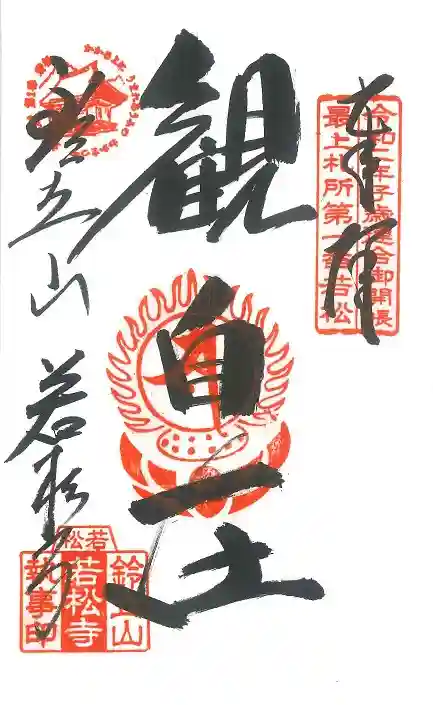 奉拝
令和二年子歳連合御開帳
最上札所第一番若松
観自在
鈴立山
若松寺
若松
鈴立山
若松寺
執事印